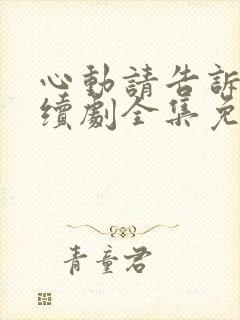 心動請告訴
續劇全集免
青童君